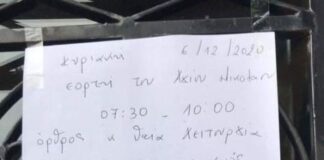 Κυριακή 6/12/2020
εορτή του Αγίου Νικολάου
07:30 - 10:00
όρθρος κ θεια λειτουργια